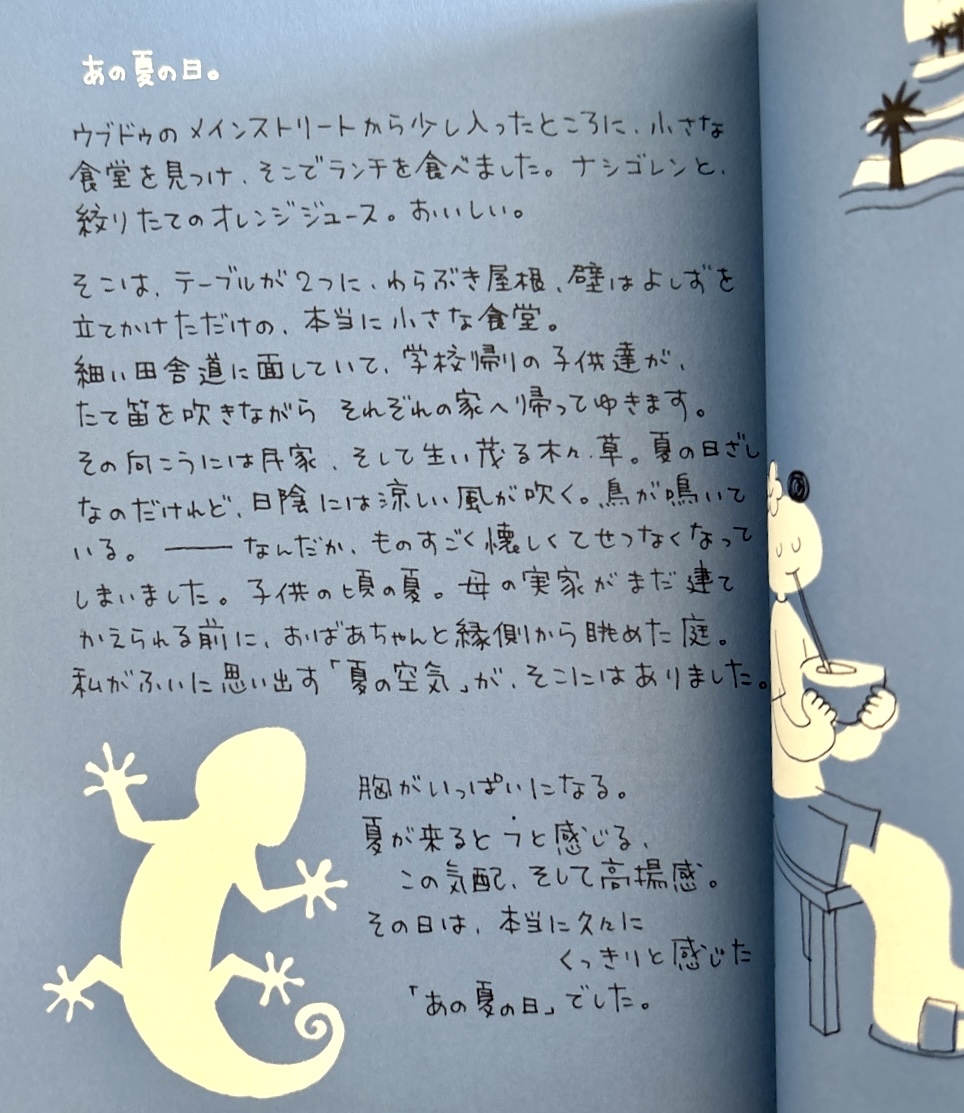 あの夏の日。
ウブドゥのメインストリートから少し入ったところに、小さな
食堂を見つけ、そこでランチを食べました。ナシゴレンと、
絞りたてのオレンジジュース。おいしい。
そこは、テーブルが2つに、わらぶき屋根、壁はよしずを
立てかけただけの、本当に小さな食堂。
細い田舎道に面していて、学校帰りの子供達が、
たて笛を吹きながら それぞれの家へ帰ってゆきます。
その向こうには民家、そして生い茂る木々、草。夏の日ざし
なのだけれど、日陰には涼しい風が吹く。鳥が鳴いて
いる。――なんだか、ものすごく懐しくてせつなくなって
しまいました。子供の頃の夏。母の実家がまだ建て
かえられる前に、おばあちゃんと縁側から眺めた庭。
私がふいに思い出す「夏の空気」が、そこにはありました。
胸がいっぱいになる。
夏が来るとふっと感じる、
この気配、そして高揚感。
その日は、本当に久々に
くっきりと感じた
「あの夏の日」でした。